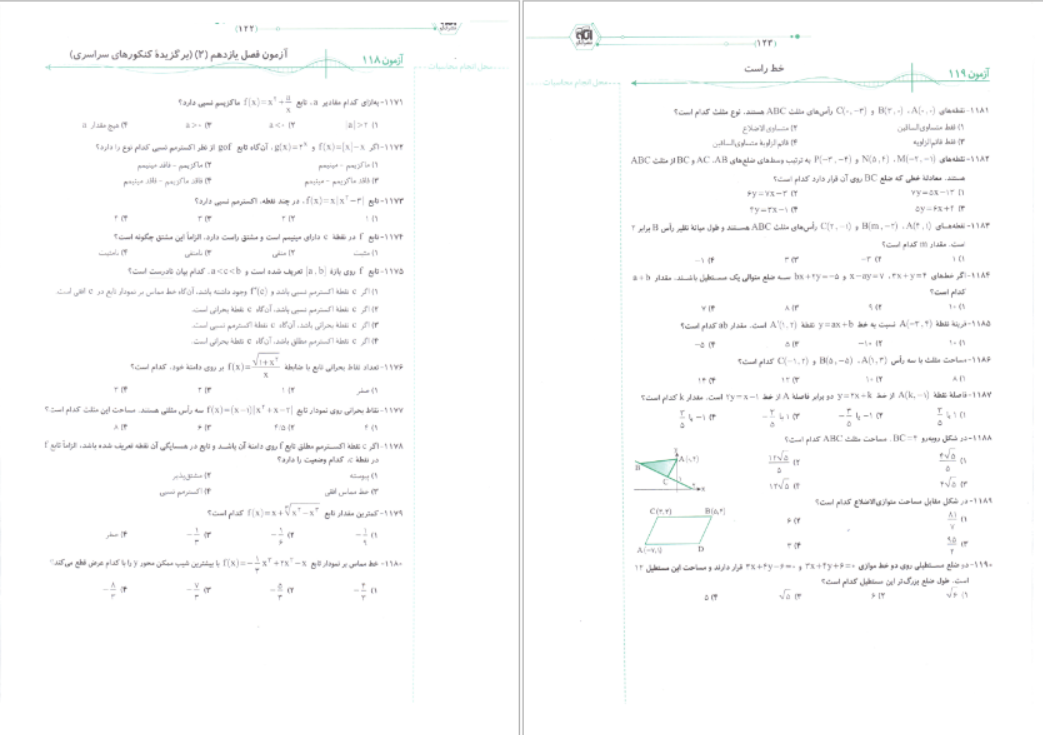 (۱۲۲)
آزمون ۱۱۸
آزمون فصل یازدهم (۲) (برگزیدهٔ کنکورهای سراسری)
محل انجام محاسبات
۱۱۷۱- به‌ازای کدام مقادیر a، تابع f(x)=x²+a/x ماکزیمم نسبی دارد؟
۱) |a|>۲ ۲) a<۰ ۳) a>۰ ۴) هیچ مقدار a
۱۱۷۲- اگر f(x)=[x]-x و g(x)=۲ˣ، آن‌گاه تابع gof از نظر اکسترمم نسبی کدام نوع را دارد؟
۱) ماکزیمم - مینیمم ۲) ماکزیمم - فاقد مینیمم
۳) فاقد ماکزیمم - مینیمم ۴) فاقد ماکزیمم - فاقد مینیمم
۱۱۷۳- تابع f(x)=x|x²-۳|، در چند نقطه، اکسترمم نسبی دارد؟
۱) ۱ ۲) ۲ ۳) ۳ ۴) ۴
۱۱۷۴- تابع f در نقطهٔ c دارای مینیمم است و مشتق راست دارد. الزاماً این مشتق چگونه است؟
۱) مثبت ۲) منفی ۳) نامنفی ۴) نامثبت
۱۱۷۵- تابع f روی بازهٔ [a,b] تعریف شده است و a<c<b. کدام بیان نادرست است؟
۱) اگر c نقطهٔ اکسترمم نسبی باشد و f′(c) وجود داشته باشد، آن‌گاه خط مماس بر نمودار تابع در c افقی است.
۲) اگر c نقطهٔ اکسترمم نسبی باشد، آن‌گاه c نقطهٔ بحرانی است.
۳) اگر c نقطهٔ بحرانی باشد، آن‌گاه c نقطهٔ اکسترمم نسبی است.
۴) اگر c نقطهٔ اکسترمم مطلق باشد، آن‌گاه c نقطهٔ بحرانی است.
۱۱۷۶- تعداد نقاط بحرانی تابع با ضابطهٔ f(x)=√(۱+x²)/x بر روی دامنهٔ خود، کدام است؟
۱) صفر ۲) ۱ ۳) ۲ ۴) ۳
۱۱۷۷- نقاط بحرانی روی نمودار تابع f(x)=(x-۱)|x²+x-۲| سه رأس مثلثی هستند. مساحت این مثلث کدام است؟
۱) ۴ ۲) ۴/۵ ۳) ۶ ۴) ۸
۱۱۷۸- اگر c نقطهٔ اکسترمم مطلق تابع f روی دامنهٔ آن باشد و تابع در همسایگی آن نقطه تعریف شده باشد، الزاماً تابع f
در نقطهٔ c، کدام وضعیت را دارد؟
۱) پیوسته ۲) مشتق‌پذیر
۳) خط مماس افقی ۴) اکسترمم نسبی
۱۱۷۹- کمترین مقدار تابع کدام است؟
۴) صفر
۱۱۸۰- خط مماس بر نمودار تابع f(x)=-۱/۳x³+۲x²-x با بیشترین شیب ممکن محور y را با کدام عرض قطع می‌کند؟
۱) -۴/۳ ۲) -۵/۳ ۳) -۷/۳ ۴) -۸/۳
(۱۲۳)
آزمون ۱۱۹
خط راست
محل انجام محاسبات
۱۱۸۱- نقطه‌های A(۰,۰)، B(۳,۰) و C(۰,-۳) رأس‌های مثلث ABC هستند، نوع مثلث کدام است؟
۱) فقط متساوی‌الساقین ۲) متساوی‌الاضلاع
۳) فقط قائم‌الزاویه ۴) قائم‌الزاویهٔ متساوی‌الساقین
۱۱۸۲- نقطه‌های M(-۲,-۱)، N(۵,۴) و P(-۳,-۴) به ترتیب وسط‌های ضلع‌های AB، AC و BC از مثلث ABC
هستند. معادلهٔ خطی که ضلع BC روی آن قرار دارد کدام است؟
۱) ۷y=۵x-۱۳ ۲) ۶y=۷x-۳
۳) ۵y=۶x+۲ ۴) ۲y=۳x-۱
۱۱۸۳- نقطه‌های A(۴,۱)، B(m,-۲) و C(۲,-۱) رأس‌های مثلث ABC هستند و طول میانهٔ نظیر رأس B برابر ۲
است. مقدار m کدام است؟
۱) ۱ ۲) -۳ ۳) ۳ ۴) -۱
۱۱۸۴- اگر خط‌های ۳x+y=۴، x-ay=۷ و bx+۲y=-۵ سه ضلع متوالی یک مستطیل باشند، مقدار a+b
کدام است؟
۱) ۱۰ ۲) ۹ ۳) ۸ ۴) ۷
۱۱۸۵- قرینهٔ نقطهٔ A(-۳,۴) نسبت به خط y=ax+b نقطهٔ A′(۱,۲) است. مقدار ab کدام است؟
۱) ۱۰ ۲) -۱۰ ۳) ۵ ۴) -۵
۱۱۸۶- مساحت مثلث با سه رأس A(۱,۳)، B(۵,-۵) و C(-۱,۲) کدام است؟
۱) ۸ ۲) ۱۰ ۳) ۱۲ ۴) ۱۴
۱۱۸۷- فاصلهٔ نقطهٔ A(k,-۱) از خط y=۲x+k دو برابر فاصلهٔ A از خط ۲y=x-۱ است. مقدار k کدام است؟
۱) ۱ یا ۳/۵ ۲) -۱ یا -۳/۵ ۳) ۱ یا -۳/۵ ۴) -۱ یا ۳/۵
۱۱۸۸- در شکل روبه‌رو BC=۴. مساحت مثلث ABC کدام است؟
۱) ۴√۵/۵ ۲) ۱۲√۵/۵
۳) ۴√۵ ۴) ۱۲√۵
۱۱۸۹- در شکل مقابل مساحت متوازی‌الاضلاع کدام است؟
C(۳,۲) B(۵,۴)
A(-۷,۱) D
۱) ۸۱/۷ ۲) ۶
۳) ۹۵/۴ ۴) ۳
۱۱۹۰- دو ضلع مستطیلی روی دو خط موازی ۳x+۴y+۶=۰ و ۳x+۴y-۶=۰ قرار دارند و مساحت این مستطیل ۱۲
است. طول ضلع بزرگ‌تر این مستطیل کدام است؟
۱) √۶ ۲) ۶ ۳) √۵ ۴) ۵